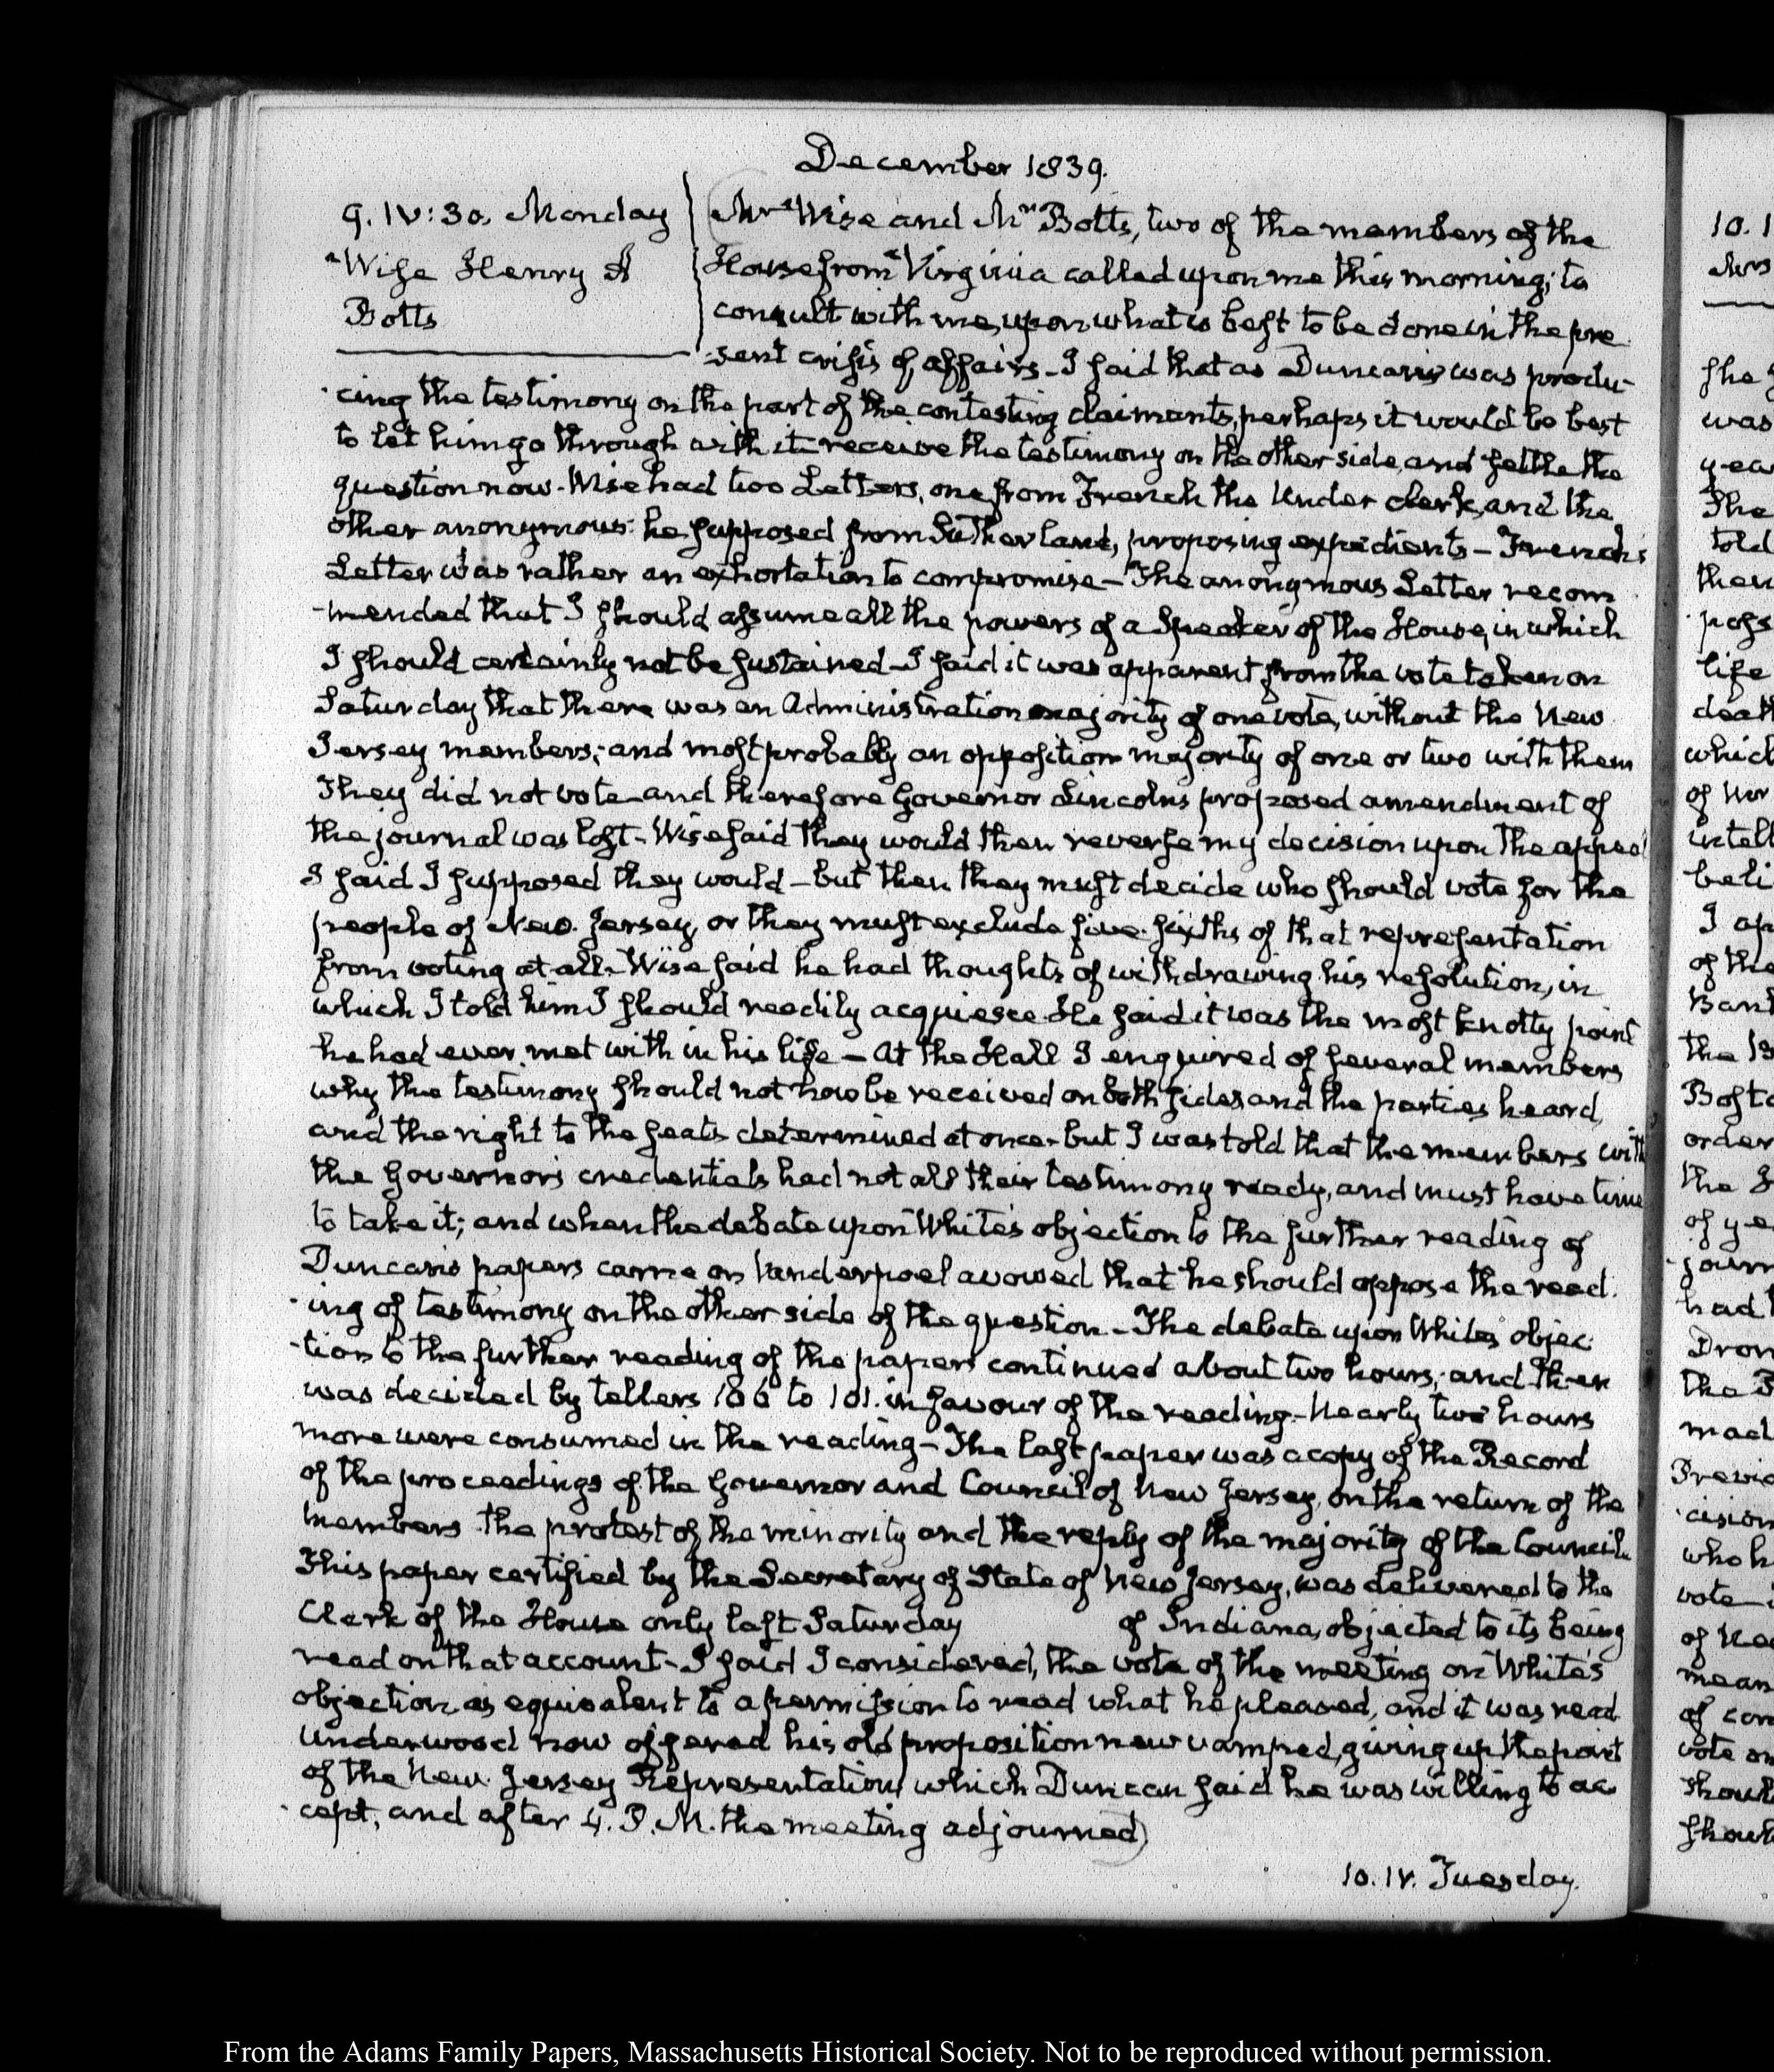 December 1839.
9. IV:30. Monday
Wise Henry A
Botts
Mr Wise and Mr Botts, two of the members of the
House from Virginia called upon me this morning; to
consult with me, upon what is best to be done in the pre
-sent crisis of affairs - I said that as Duncan was produ-
-cing the testimony on the part of the contesting claimants, perhaps it would be best
to let him go through with it receive the testimony on the other side, and settle the
question now. Wise had two Letters, one from French the Under clerk, and the
other anonymous: he supposed from Sutherland, proposing expedients - French's
Letter was rather an exhortation to compromise - The anonymous Letter recom
-mended that I should assume all the powers of a Speaker of the House, in which
I should certainly not be sustained - I said it was apparent from the vote taken on
Saturday that there was an Administration majority of one vote, without the New
Jersey members; and most probably an opposition majority of one or two with them
They did not vote and therefore Governor Lincoln's proposed amendment of
the journal was lost - Wise said they would then reverse my decision upon the appeal
I said I supposed they would - but then they must decide who should vote for the
people of New Jersey, or they must exclude five sixths of that representation
from voting at all - Wise said he had thoughts of withdrawing his resolution, in
which I told him I should readily acquiesce He said it was the most knotty point
he had ever met with in his life - At the Hall I enquired of several members
why the testimony should not now be received on both sides and the parties heard,
and the right to the seats determined at once - but I was told that the members with
the Governor's credentials had not all their testimony ready, and must have time
to take it; and when the debate upon White's objection to the further reading of
Duncan's papers came on Vanderpoel avowed that he should oppose the read.
-ing of testimony on the other side of the question - The debate upon White's objec
-tion to the further reading of the papers continued about two hours; and then
was decided by tellers 106 to 101. in favour of the reading - Nearly two hours
more were consumed in the reading - The last paper was a copy of the Record
of the proceedings of the Governor and Council of New Jersey, on the return of the
members the protest of the minority and the reply of the majority of the Council.
This paper certified by the Secretary of State of New Jersey, was delivered to the
Clerk of the House only last Saturday of Indiana, objected to its being
read on that account - I said I considered, the vote of the meeting on White's
objection as equivalent to a permission to read what he pleased, and it was read
Underwood now offered his old proposition new vamped, giving up the part
of the New Jersey Representation, which Duncan said he was willing to ac
-cept; and after 4. P.M. the meeting adjourned)
10. IV. Tuesday.
From the Adams Family Papers, Massachusetts Historical Society. Not to be reproduced without permission.